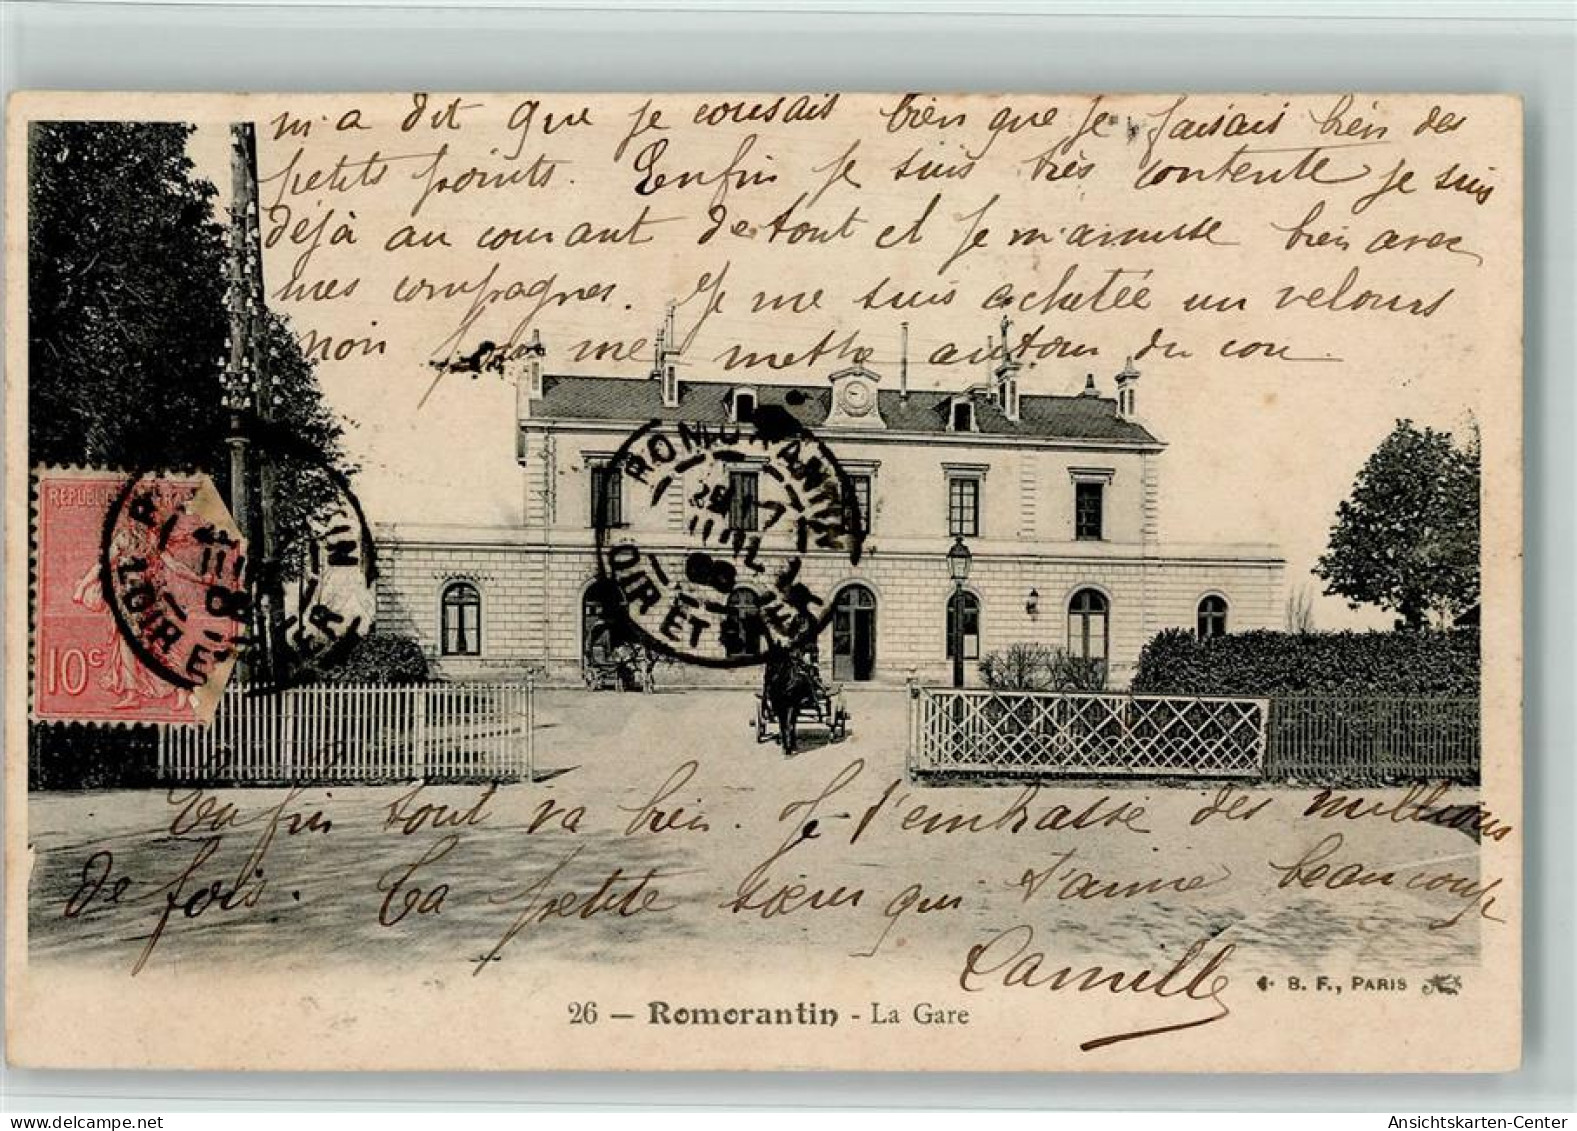 m'a dit que je cousais bien que je faisais bien des
petits points. Enfin je suis très contente je suis
déjà au courant de tout et je m'amuse bien avec
mes compagnes. Je me suis achetée un velours
noir pour me mettre autour du cou.
ROMORANTIN
25
11
LOIR ET CHER
REPUBLIQUE FRANÇAISE
10c
LOIR ET CHER
Enfin tout va bien. Je t'embrasse des millions
de fois. Ta petite sœur qui t'aime beaucoup
Camille
B. F., PARIS
26 — Romorantin - La Gare
Ansichtskarten-Center